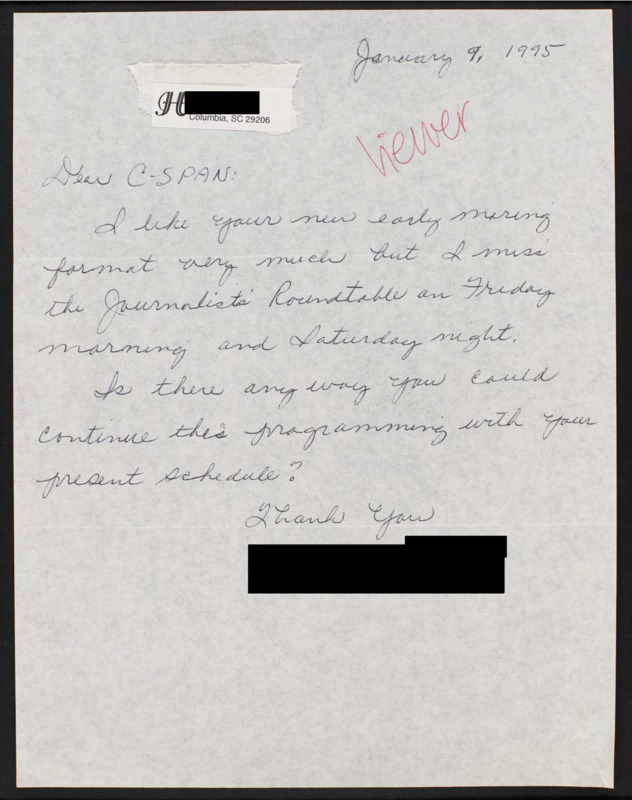 January 9, 1995
H
Columbia, SC 29206
Viewer
Dear C-SPAN:
I like your new early moring
format very much but I miss
the Journalists' Roundtable on Friday
morning and Saturday night.
Is there any way you could
continue this programming with your
present schedule?
Thank You